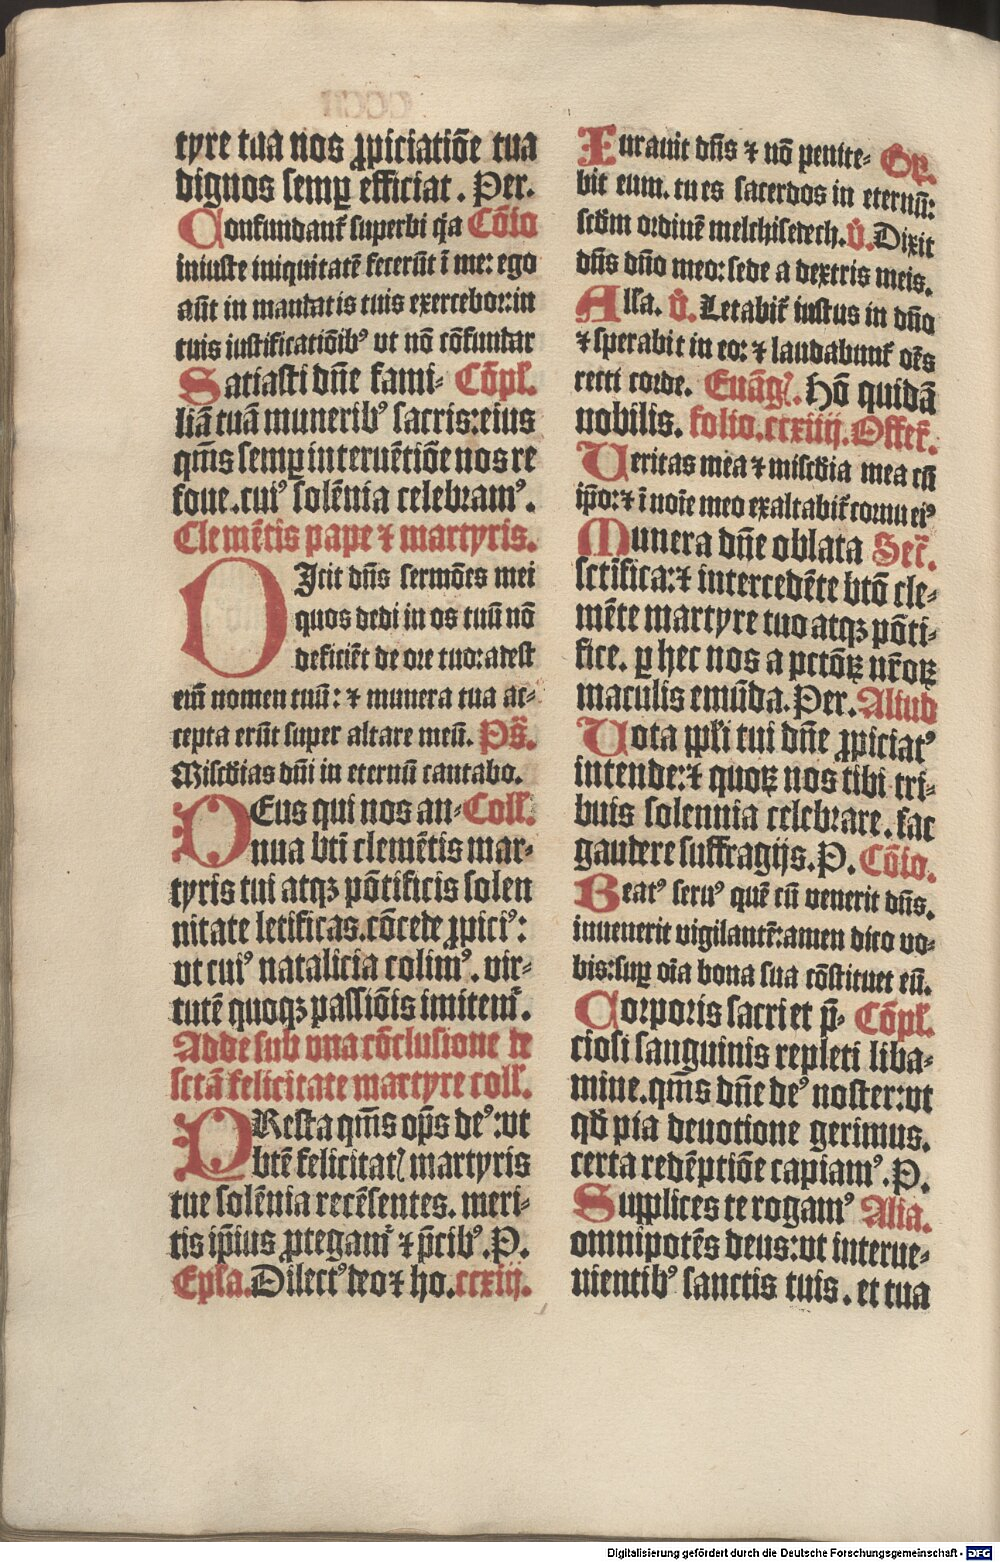 tyre tua nos ꝓpiciatiōe tua
dignos semꝑ efficiat. Per.
Confundant᷑ superbi q̇a Cōio
iniuste iniquitatē fecerūt ī me: ego
aūt in mandatis tuis exercebor: in
tuis iustificatiōibꝰ vt nō cōfundar
Satiasti dn̄e fami- Cōpl̄.
liā tuā muneribꝰ sacris: eius
qm̄s semꝑ interuētiōe nos re
foue. cuiꝰ solēnia celebramꝰ.
Clemētis pape ⁊ martyris.
DIcit dn̄s sermōes mei
quos dedi in os tuū nō
deficiēt de ore tuo: adest
eīm nomen tuū: ⁊ munera tua ac-
cepta erūt super altare meū. Ps̄.
Misc̄dias dn̄i in eternū cantabo.
DEus qui nos an- Coll̄.
nua bt̄i clemētis mar-
tyris tui atqꝫ pōtificis solen
nitate letificas. cōcede ꝓpiciꝰ:
vt cuiꝰ natalicia colimꝰ. vir-
tutē quoqꝫ passiōis imitem᷑.
Adde sub vna cōclusione de
sctā felicitate martyre coll̄.
PResta qm̄s op̄s deꝰ: vt
btē felicitatꝭ martyris
tue solēnia recēsentes. meri-
tis ip̄ius ꝓtegam᷑ ⁊ p̄cibꝰ. P.
Ep̄la. Dilectꝰ deo ⁊ ho. ccxiij.
Iurauit dn̄s ⁊ nō penite- Gꝝ.
bit eum. tu es sacerdos in eternū:
scd̄m ordinē melchisedech. v̊. Dixit
dn̄s dn̄o meo: sede a dextris meis.
All̄a. v̊. Letabit᷑ iustus in dn̄o
⁊ sperabit in eo: ⁊ laudabunt᷑ oēs
recti corde. Euāgꝭ. Hō quidā
nobilis. folio. ccxiiij. Offer̄.
Ueritas mea ⁊ misc̄dia mea cū
ip̄o: ⁊ ī noīe meo exaltabit᷑ cornu eiꝰ
Munera dn̄e oblata Sec̄.
sctifica: ⁊ intercedēte btō cle-
mēte martyre tuo atqꝫ pōti-
fice. ꝑ hec nos a pctōꝝ nr̄oꝝ
maculis emūda. Per. Aliud
Uota ppl̄i tui dn̄e ꝓpiciatꝰ
intende: ⁊ quoꝝ nos tibi tri-
buis solennia celebrare. fac
gaudere suffragijs. P. Cōio.
Beatꝰ seruꝰ quē cū venerit dn̄s.
inuenerit vigilantē: amen dico vo-
bis: suꝑ oīa bona sua cōstituet eū.
Corporis sacri et p̄- Cōpl̄.
ciosi sanguinis repleti liba-
mine. qm̄s dn̄e deꝰ noster: vt
qd̄ pia deuotione gerimus.
certa redēptiōe capiamꝰ. P.
Supplices te rogamꝰ Alia.
omnipotēs deus: vt interue-
nientibꝰ sanctis tuis. et tua
Digitalisierung gefördert durch die Deutsche Forschungsgemeinschaft - DFG